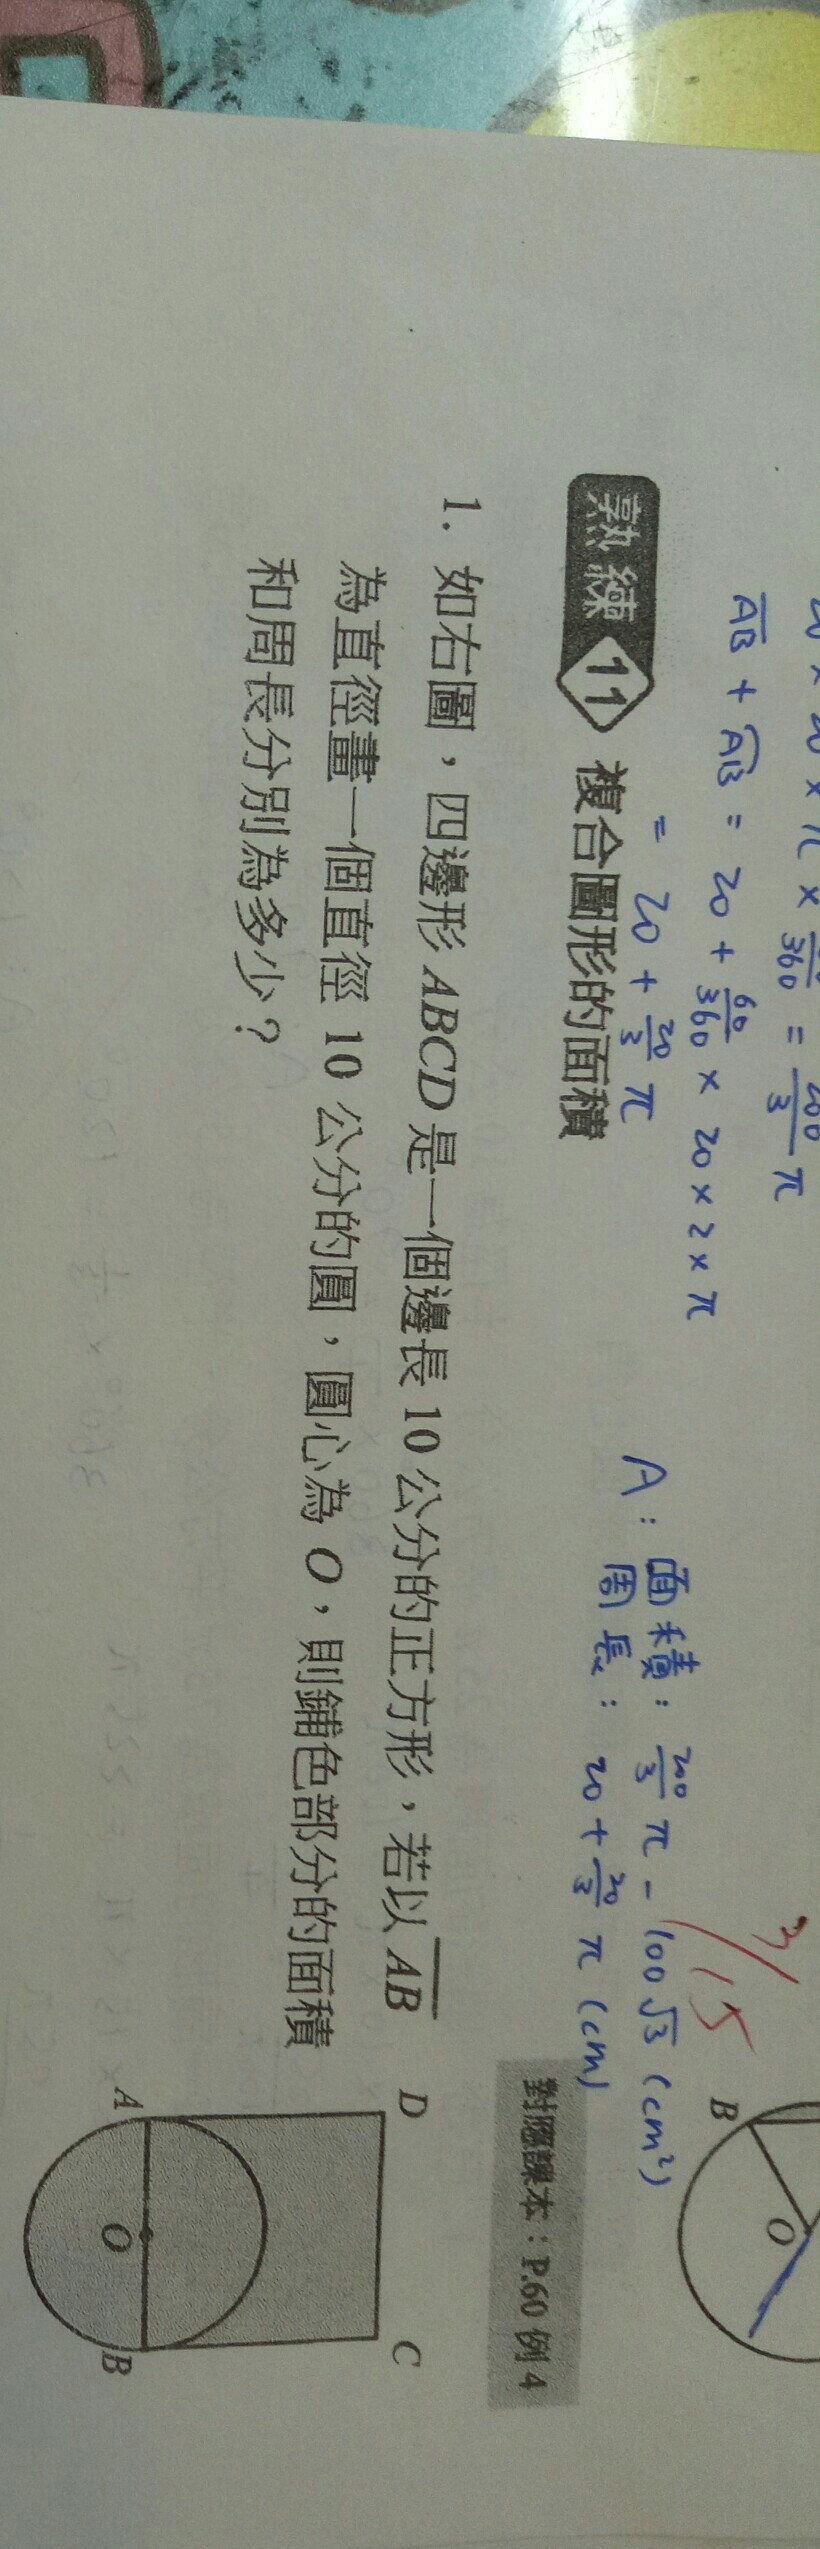 20 × 20 × π × 60/360 = 200/3 π
A͞B + A͡B = 20 + 60/360 × 20 × 2 × π
= 20 + 20/3 π
A：面積：200/3 π - 100√3 (cm²)
周長：20 + 20/3 π (cm)
3/15
B
O
熟練 11 複合圖形的面積
對應課本：P.60 例 4
1. 如右圖，四邊形 ABCD 是一個邊長 10 公分的正方形，若以 A͞B
為直徑畫一個直徑 10 公分的圓，圓心為 O，則鋪色部分的面積
和周長分別為多少？
D C
A O B